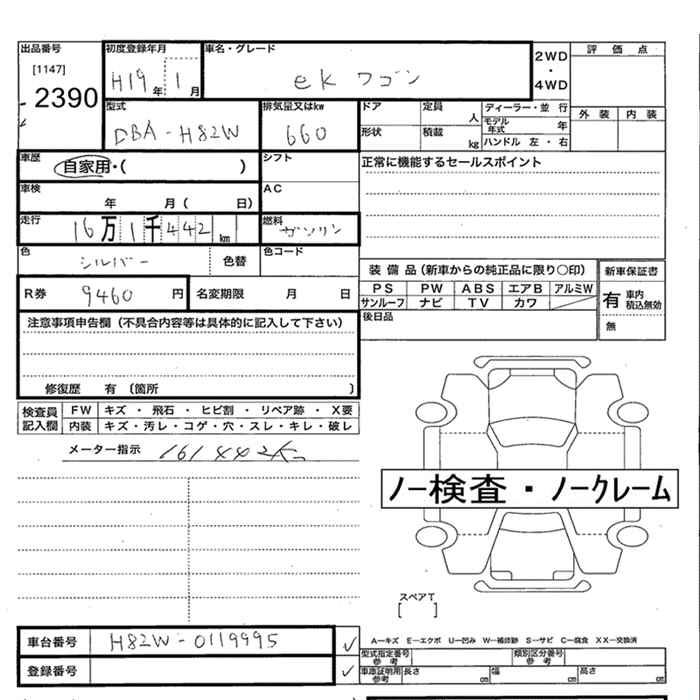 出品番号 初度登録年月 車名・グレード 2WD 評価点
[1147] H19年 1月 ekワゴン ・
2390 4WD
型式 排気量又はkw ドア 定員 人 ディーラー・並行 外装 内装
DBA-H82W 660 モデル年式 年
形状 積載 kg ハンドル 左・右
車歴 自家用・( ) シフト 正常に機能するセールスポイント
車検 年 月( 日) AC
走行 16万1千442km 燃料 ガソリン
色 シルバー 色替 色コード
装備品(新車からの純正品に限り○印) 新車保証書
R券 9460円 名変期限 月 日 PS PW ABS エアB アルミW 有 車内積込無効
サンルーフ ナビ TV カワ
後日品 無
注意事項申告欄(不具合内容等は具体的に記入して下さい)
修復歴 有 〔箇所 〕
検査員記入欄 FW キズ・飛石・ヒビ割・リペア跡・X要
内装 キズ・汚レ・コゲ・穴・スレ・キレ・破レ
メーター指示 161442K
ノー検査・ノークレーム
スペアT
[ ]
車台番号 H82W-0119995 ✓ A―キズ E―エクボ U―凹み W―補修跡 S―サビ C―腐食 XX―交換済
型式指定番号 参考 類別区分番号 参考
登録番号 ✓ 車庫証明用 参考 長さ cm 幅 cm 高さ cm